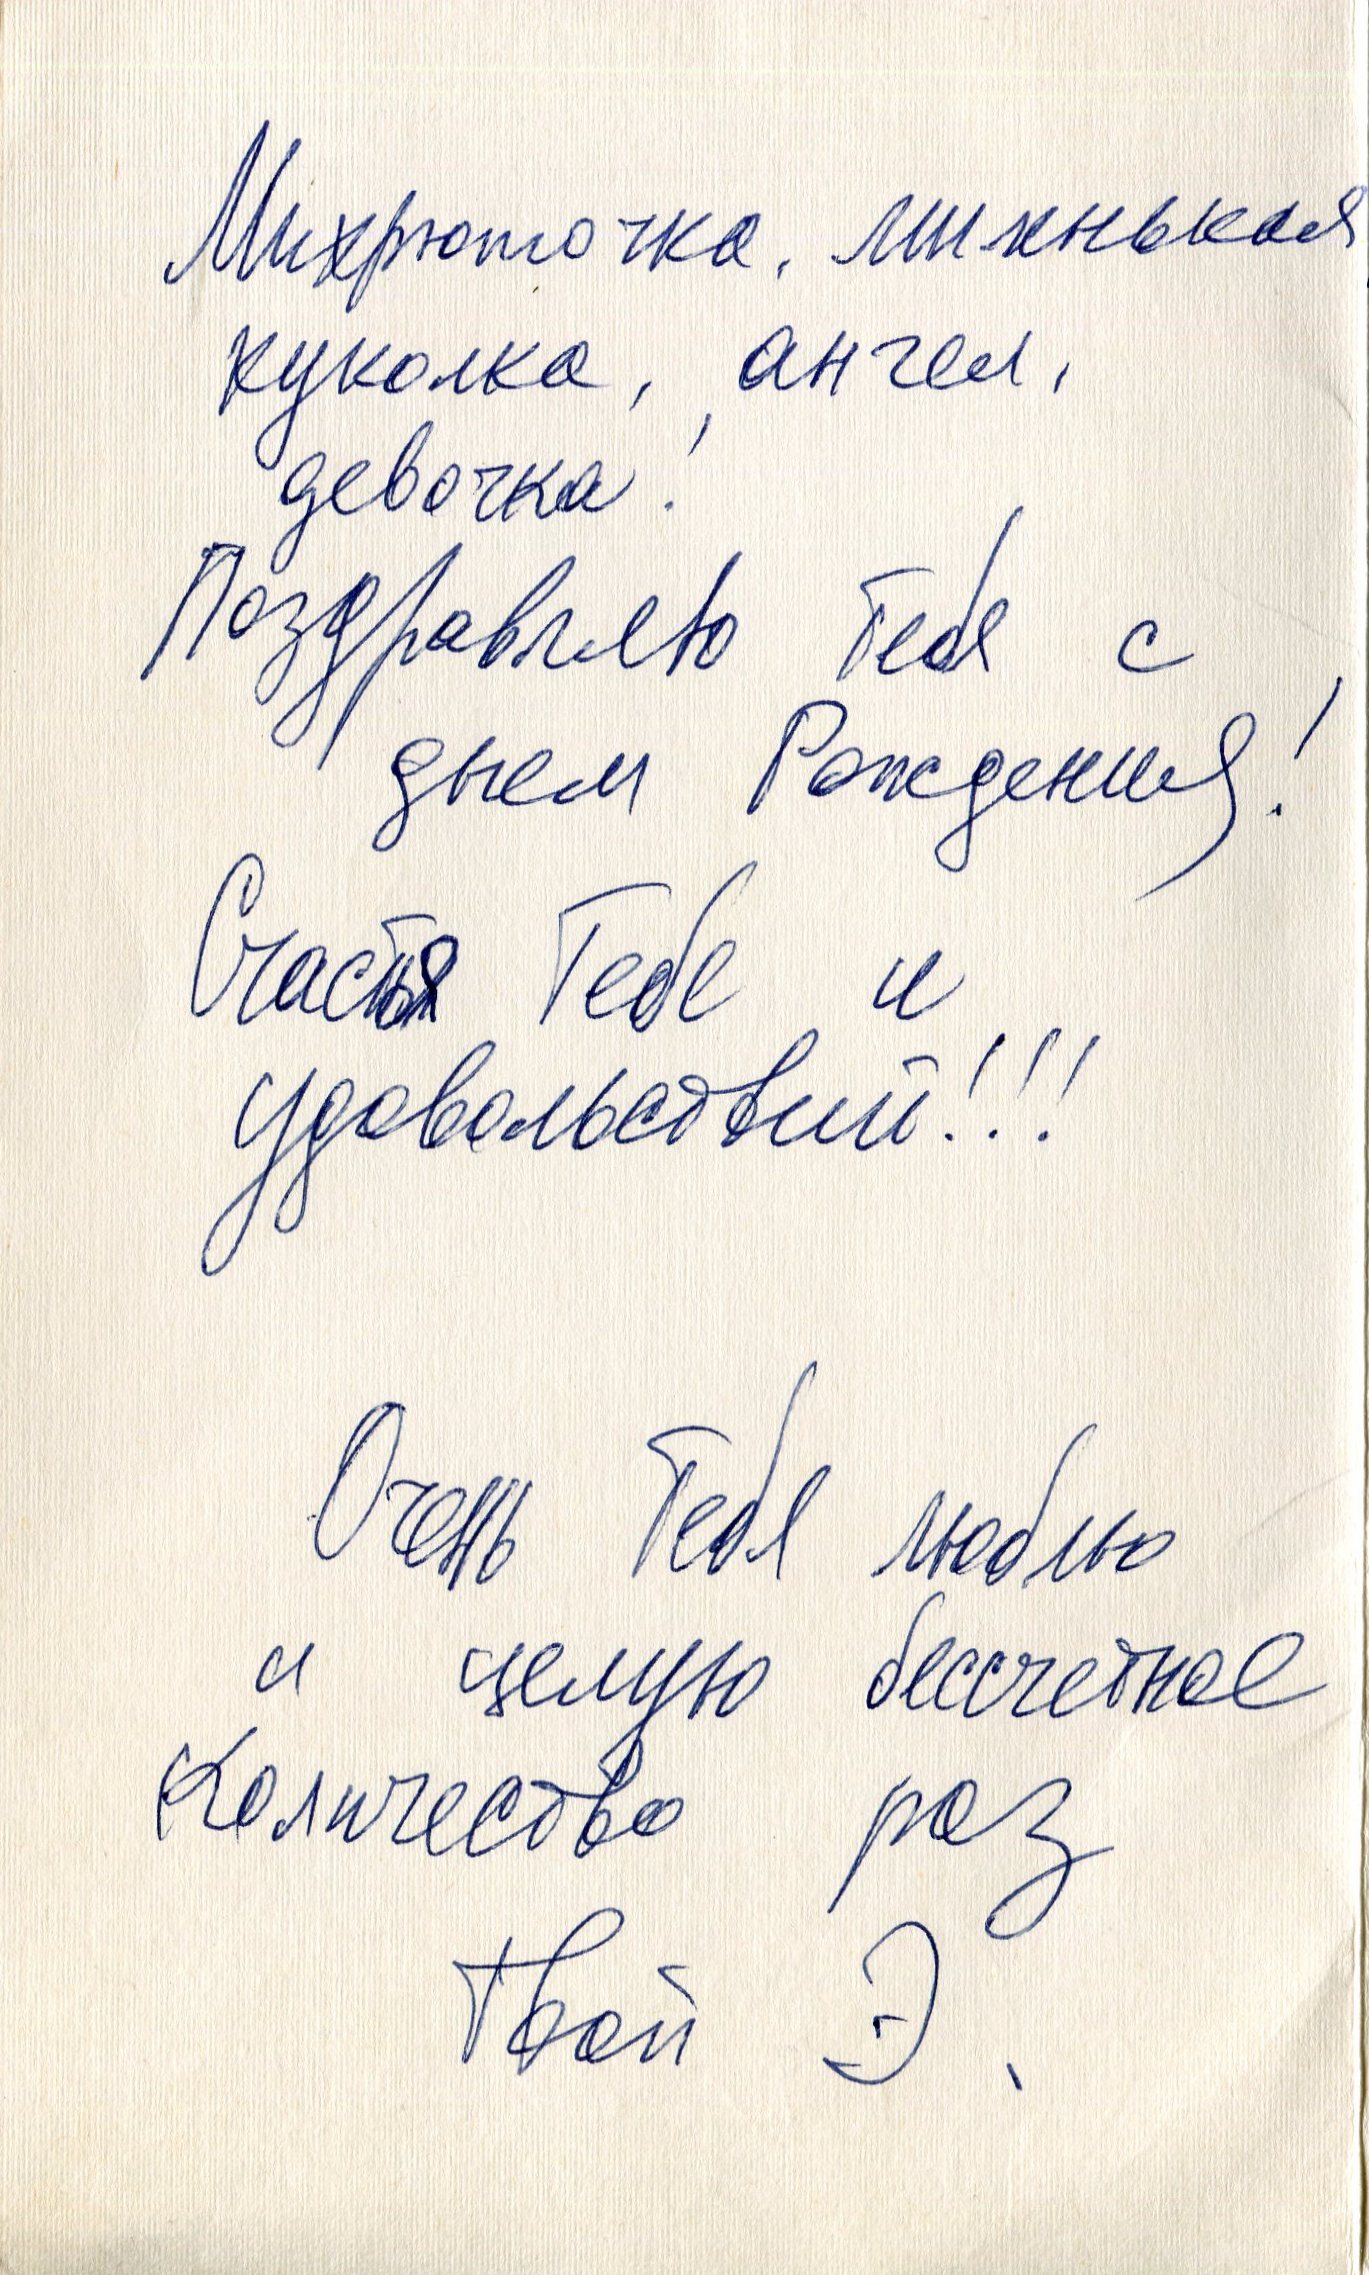 Михрюточка, миленькая
куколка, ангел,
девочка!
Поздравляю Тебя с
днем Рождения!
Счастья Тебе и
удовольствий!!!
Очень Тебя люблю
и целую бессчетное
Количество раз
Твой Э.